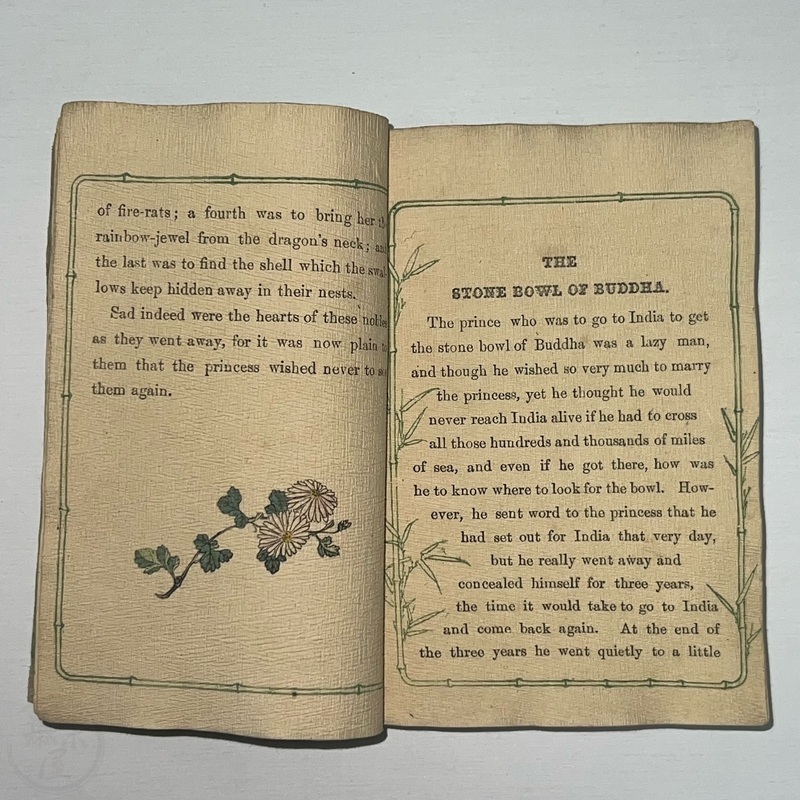 of fire-rats; a fourth was to bring her
rainbow-jewel from the dragon's neck;
the last was to find the shell which the swal-
lows keep hidden away in their nests.
Sad indeed were the hearts of these nobles
as they went away, for it was now plain
them that the princess wished never to
them again.
THE
STONE BOWL OF BUDDHA.
The prince who was to go to India to get
the stone bowl of Buddha was a lazy man,
and though he wished so very much to marry
the princess, yet he thought he would
never reach India alive if he had to cross
all those hundreds and thousands of miles
of sea, and even if he got there, how was
he to know where to look for the bowl. How-
ever, he sent word to the princess that he
had set out for India that very day,
but he really went away and
concealed himself for three years,
the time it would take to go to India
and come back again. At the end of
the three years he went quietly to a little